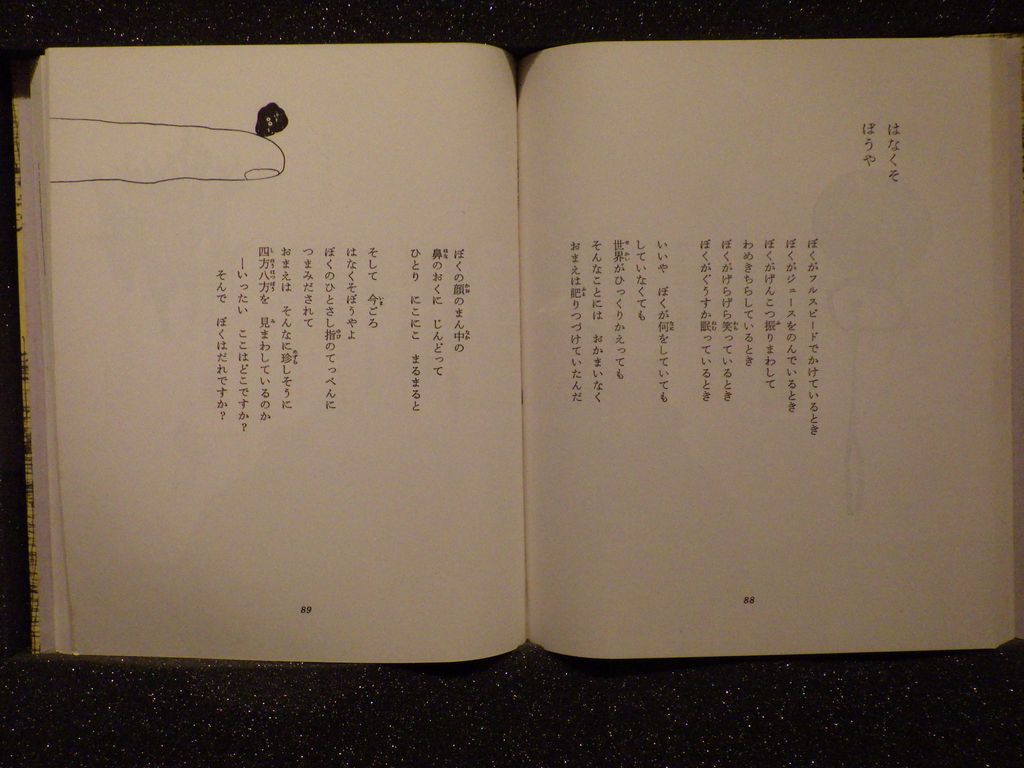 はなくそ
ぼうや
ぼくがフルスピードでかけているとき
ぼくがジュースをのんでいるとき
ぼくがげんこつ振りまわして
わめきちらしているとき
ぼくがげらげら笑っているとき
ぼくがぐうすか眠っているとき
いいや　ぼくが何をしていても
していなくても
世界がひっくりかえっても
そんなことには　おかまいなく
おまえは肥りつづけていたんだ
88
ぼくの顔のまん中の
鼻のおくに　じんどって
ひとり　にこにこ　まるまると
そして　今ごろ
はなくそぼうやよ
ぼくのひとさし指のてっぺんに
つまみだされて
おまえは　そんなに珍しそうに
四方八方を　見まわしているのか
―いったい　ここはどこですか？
そんで　ぼくはだれですか？
89